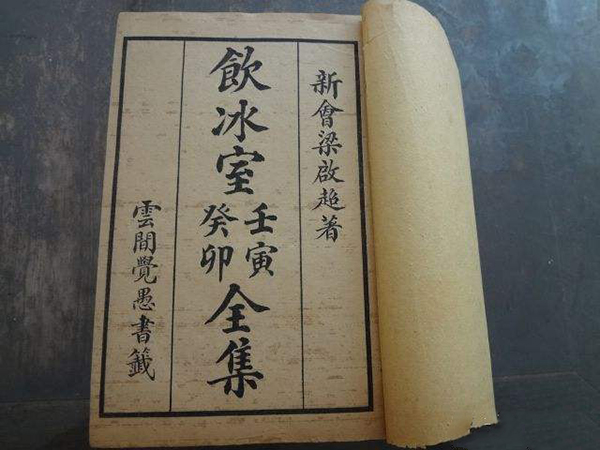 新會梁啟超著
飲冰室壬寅癸卯全集
雲間覺愚書籤